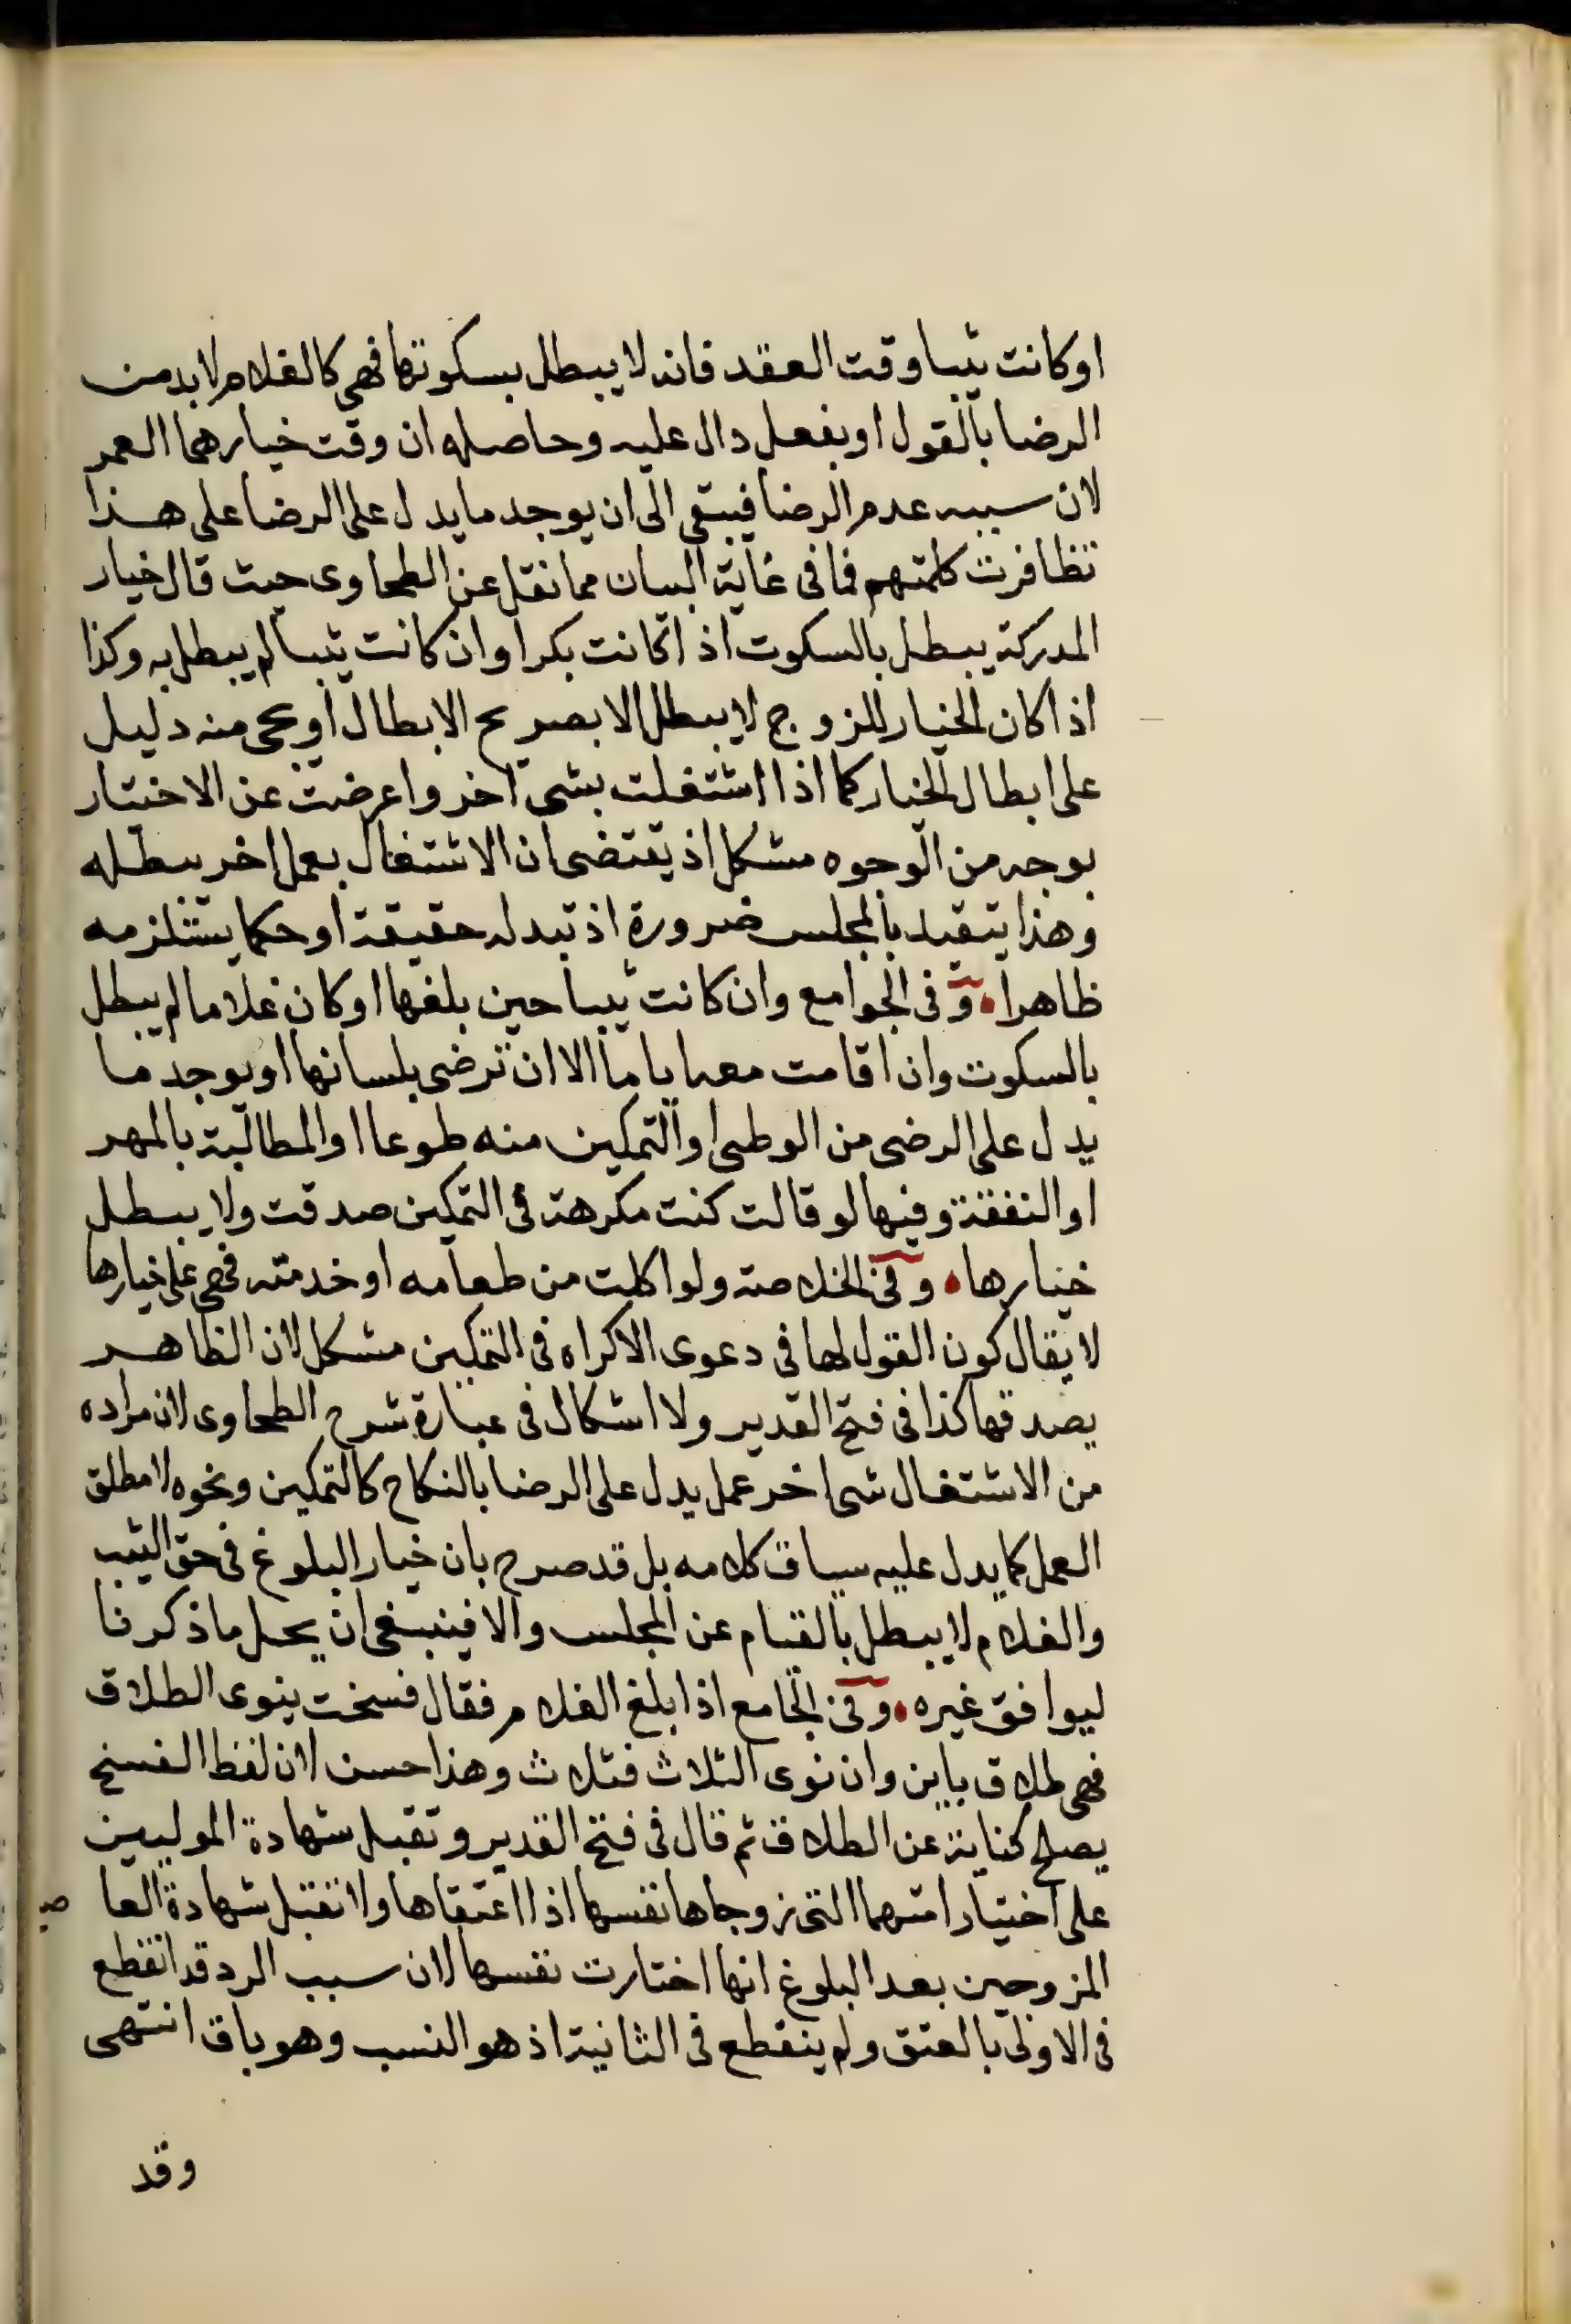 او كانت ثيبا وقت العقد فانه لا يبطل بسكوتها فهي كالغلام لا بد من
الرضا بالقول او بفعل دال عليه وحاصله ان وقت خيارهما العمر
لان سببه عدم الرضا فيبقى الى ان يوجد ما يدل على الرضا على هذا
تظافرت كلمتهم فما في غاية البيان مما نقل عن الطحاوى حيث قال خيار
المدركة يبطل بالسكوت اذا كانت بكرا وان كانت ثيبا لم يبطل به وكذا
اذا كان الخيار للزوج لا يبطل الا بصريح الابطال او يجى منه دليل
على ابطال الخيار كما اذا اشتغلت بشى اخر واعرضت عن الاختيار
بوجه من الوجوه مشكل اذ يقتضى ان الاشتغال بعمل اخر يبطله
وهذا يتقيد بالمجلس ضرورة اذ تبدله حقيقة او حكما يستلزمه
ظاهرا، وفى الجوامع وان كانت ثيبا حين بلغها او كان غلاما لم يبطل
بالسكوت وان اقامت معه اياما الا ان ترضى بلسانها او يوجد ما
يدل على الرضى من الوطى او التمكين منه طوعا او المطالبة بالمهر
او النفقة وفيها لو قالت كنت مكرهة فى التمكين صدقت ولا يبطل
خيارها، وفى الخلاصة ولو اكلت من طعامه او خدمته فهى على خيارها
لا يقال كون القول لها فى دعوى الاكراه فى التمكين مشكل لان الظاهر
يصدقها كذا فى فتح القدير ولا اشكال فى عبارة شرح الطحاوى لان مراده
من الاشتغال شى اخر عمل يدل على الرضا بالنكاح كالتمكين ونحوه لا مطلق
العمل كما يدل عليه سياق كلامه بل قد صرح بان خيار البلوغ فى حق الثيب
والغلام لا يبطل بالقيام عن المجلس والا فينبغى ان يحمل ما ذكرنا
ليوافق غيره، وفى الجامع اذا بلغ الغلام فقال فسخت ينوى الطلاق
فهى طلاق باين وان نوى الثلاث فثلاث وهذا حسن لان لفظ الفسخ
يصلح كناية عن الطلاق ثم قال فى فتح القدير وتقبل شهادة الموليين
على اختيار امتهما التى زوجاها نفسها اذا اعتقاها ولا تقبل شهادة العا صبـ
المزوجين بعد البلوغ انها اختارت نفسها لان سبب الرد قد انقطع
فى الاولى بالعتق ولم ينقطع فى الثانية اذ هو النسب وهو باق انتهى
وقد